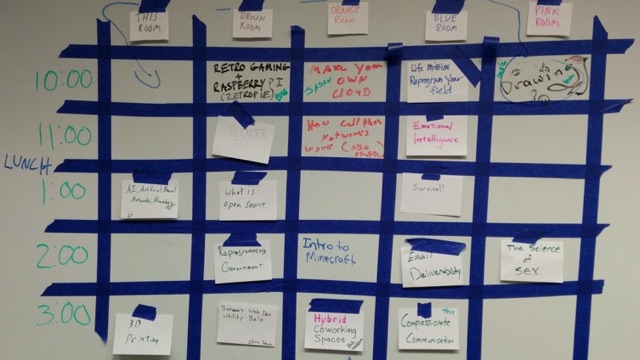 THIS
ROOM
BROWN
ROOM
ORANGE
ROOM
BLUE
ROOM
PINK
ROOM
10:00
RETRO GAMING
+
RASPBERRY PI
(RETROPIE)
MAKE YOUR
OWN
CLOUD
JASON
Life Mission
Reprogram Your
field
Drawing
11:00
How cell phone
networks
work
Emotional
Intelligence
LUNCH
1:00
AI, Artificial Neural
Networks, Neurology
What is
Open Source
Survival!
2:00
Reprogramming
Government
Intro to
Minecraft
Email
Deliverability
The Science
of
SEX
3:00
3D
Printing
Web Dev
Utility Belt
Hybrid
Coworking
Spaces
Compassionate
Communication